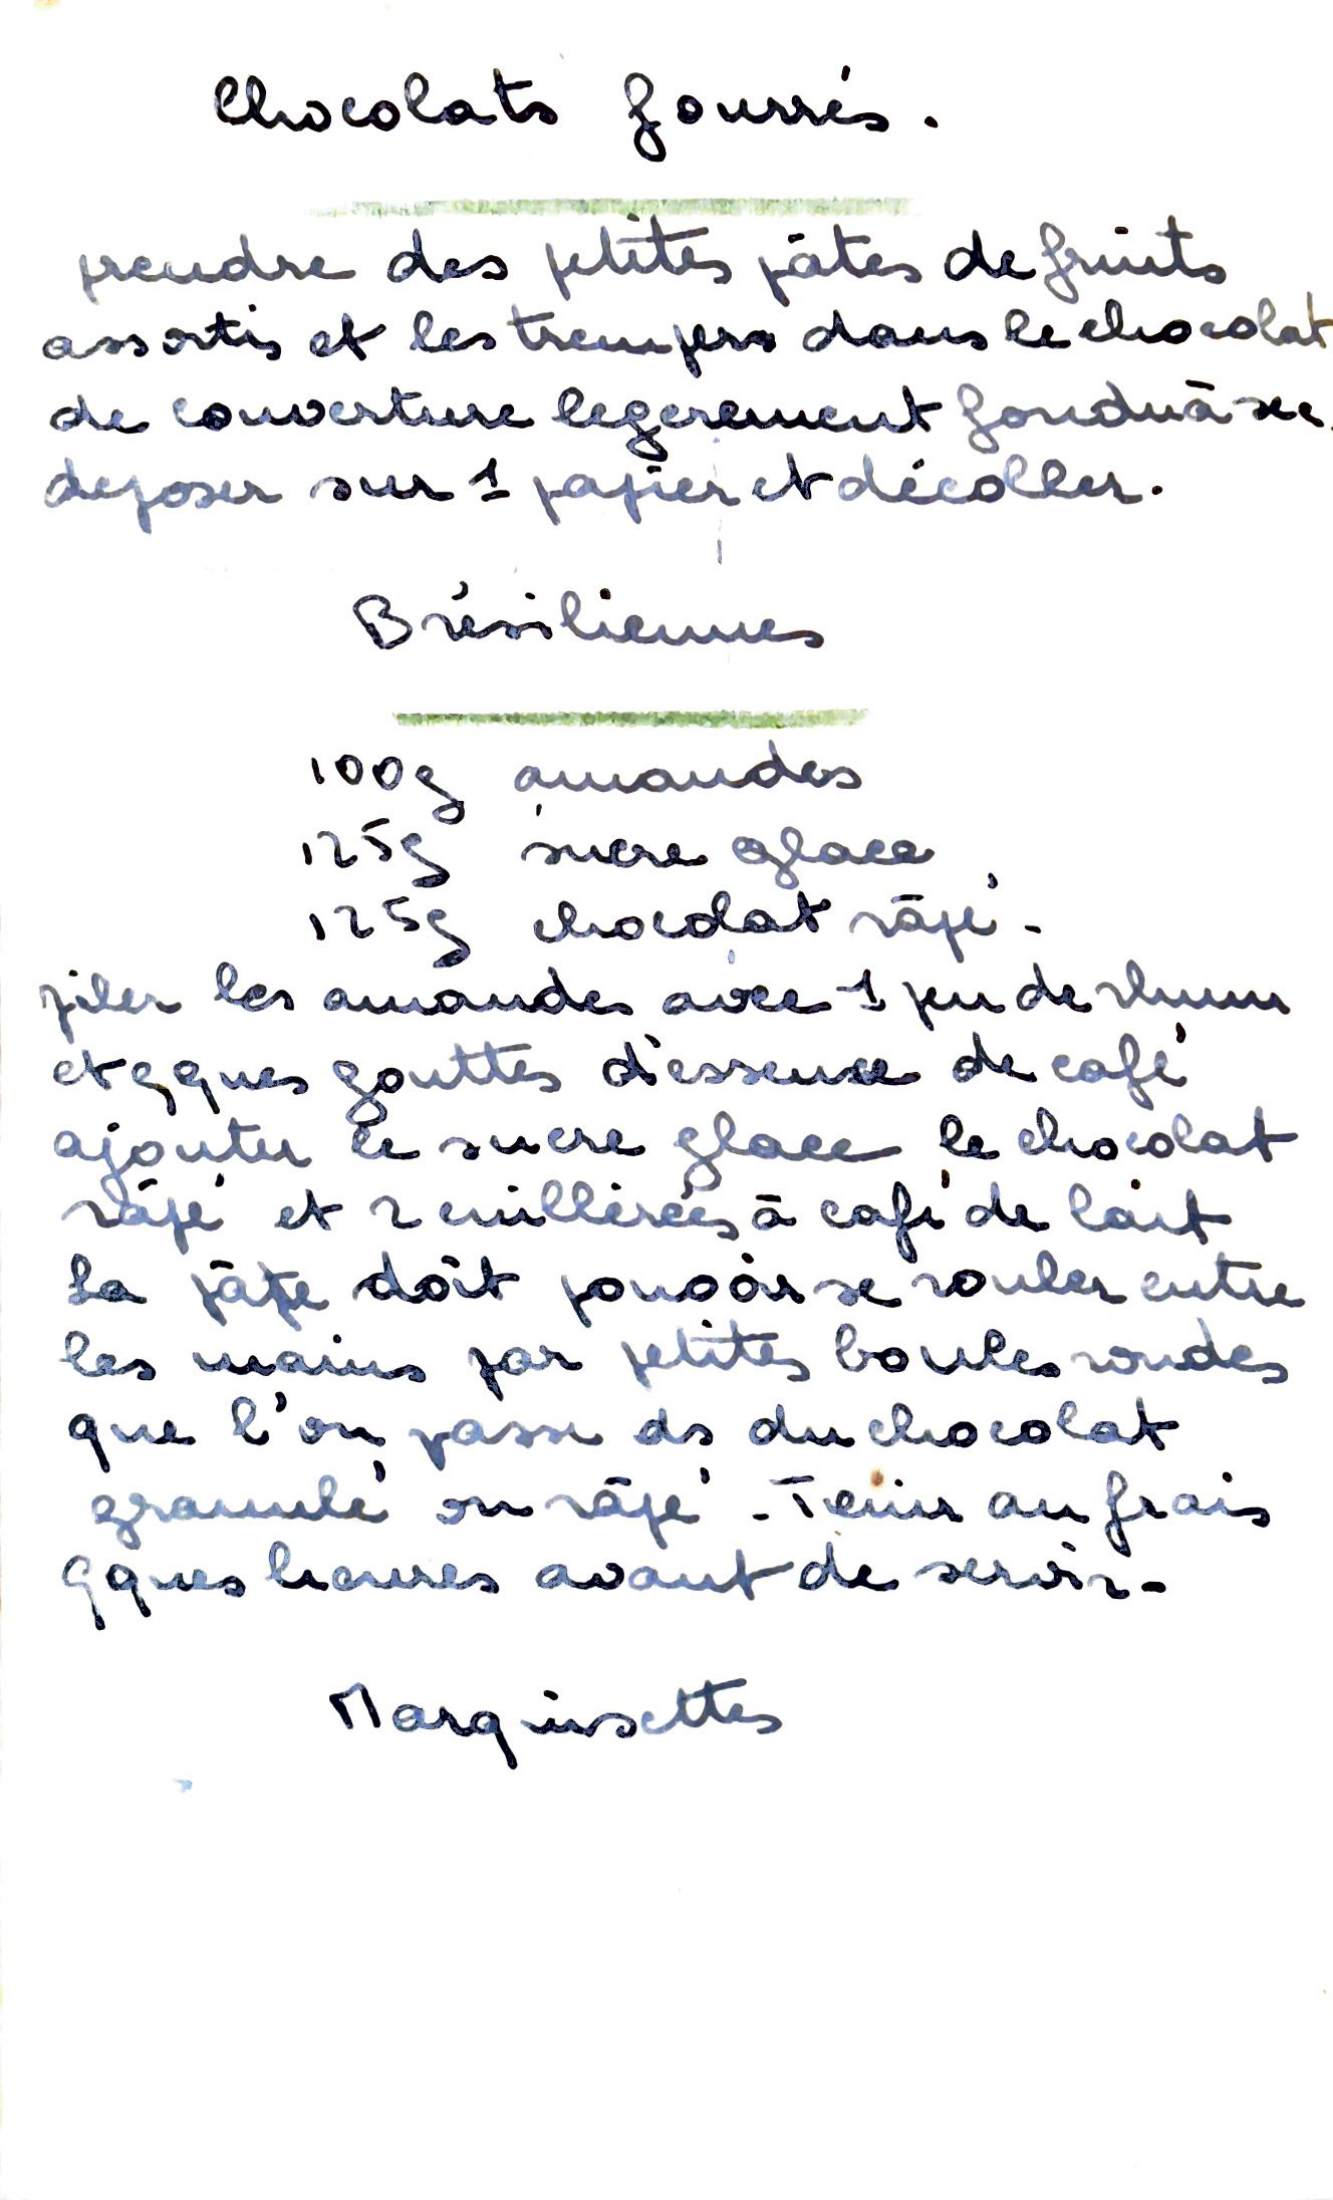 Chocolats fourrés.
prendre des petites pâtes de fruits
assortis et les tremper dans le chocolat
de couverture legerement fondu à sec.
deposer sur 1 papier et décoller.
Brésiliennes
100g amandes
125g sucre glace
125g chocolat râpé -
piler les amandes avec 1 peu de rhum
et qques gouttes d'essence de café
ajouter le sucre glace le chocolat
râpé et 2 cuillèrées à café de lait
La pâte doit pouvoir se rouler entre
les mains par petites boules rondes
que l'on passe ds du chocolat
granulé ou râpé - Tenir au frais
qques heures avant de servir -
Marquisettes